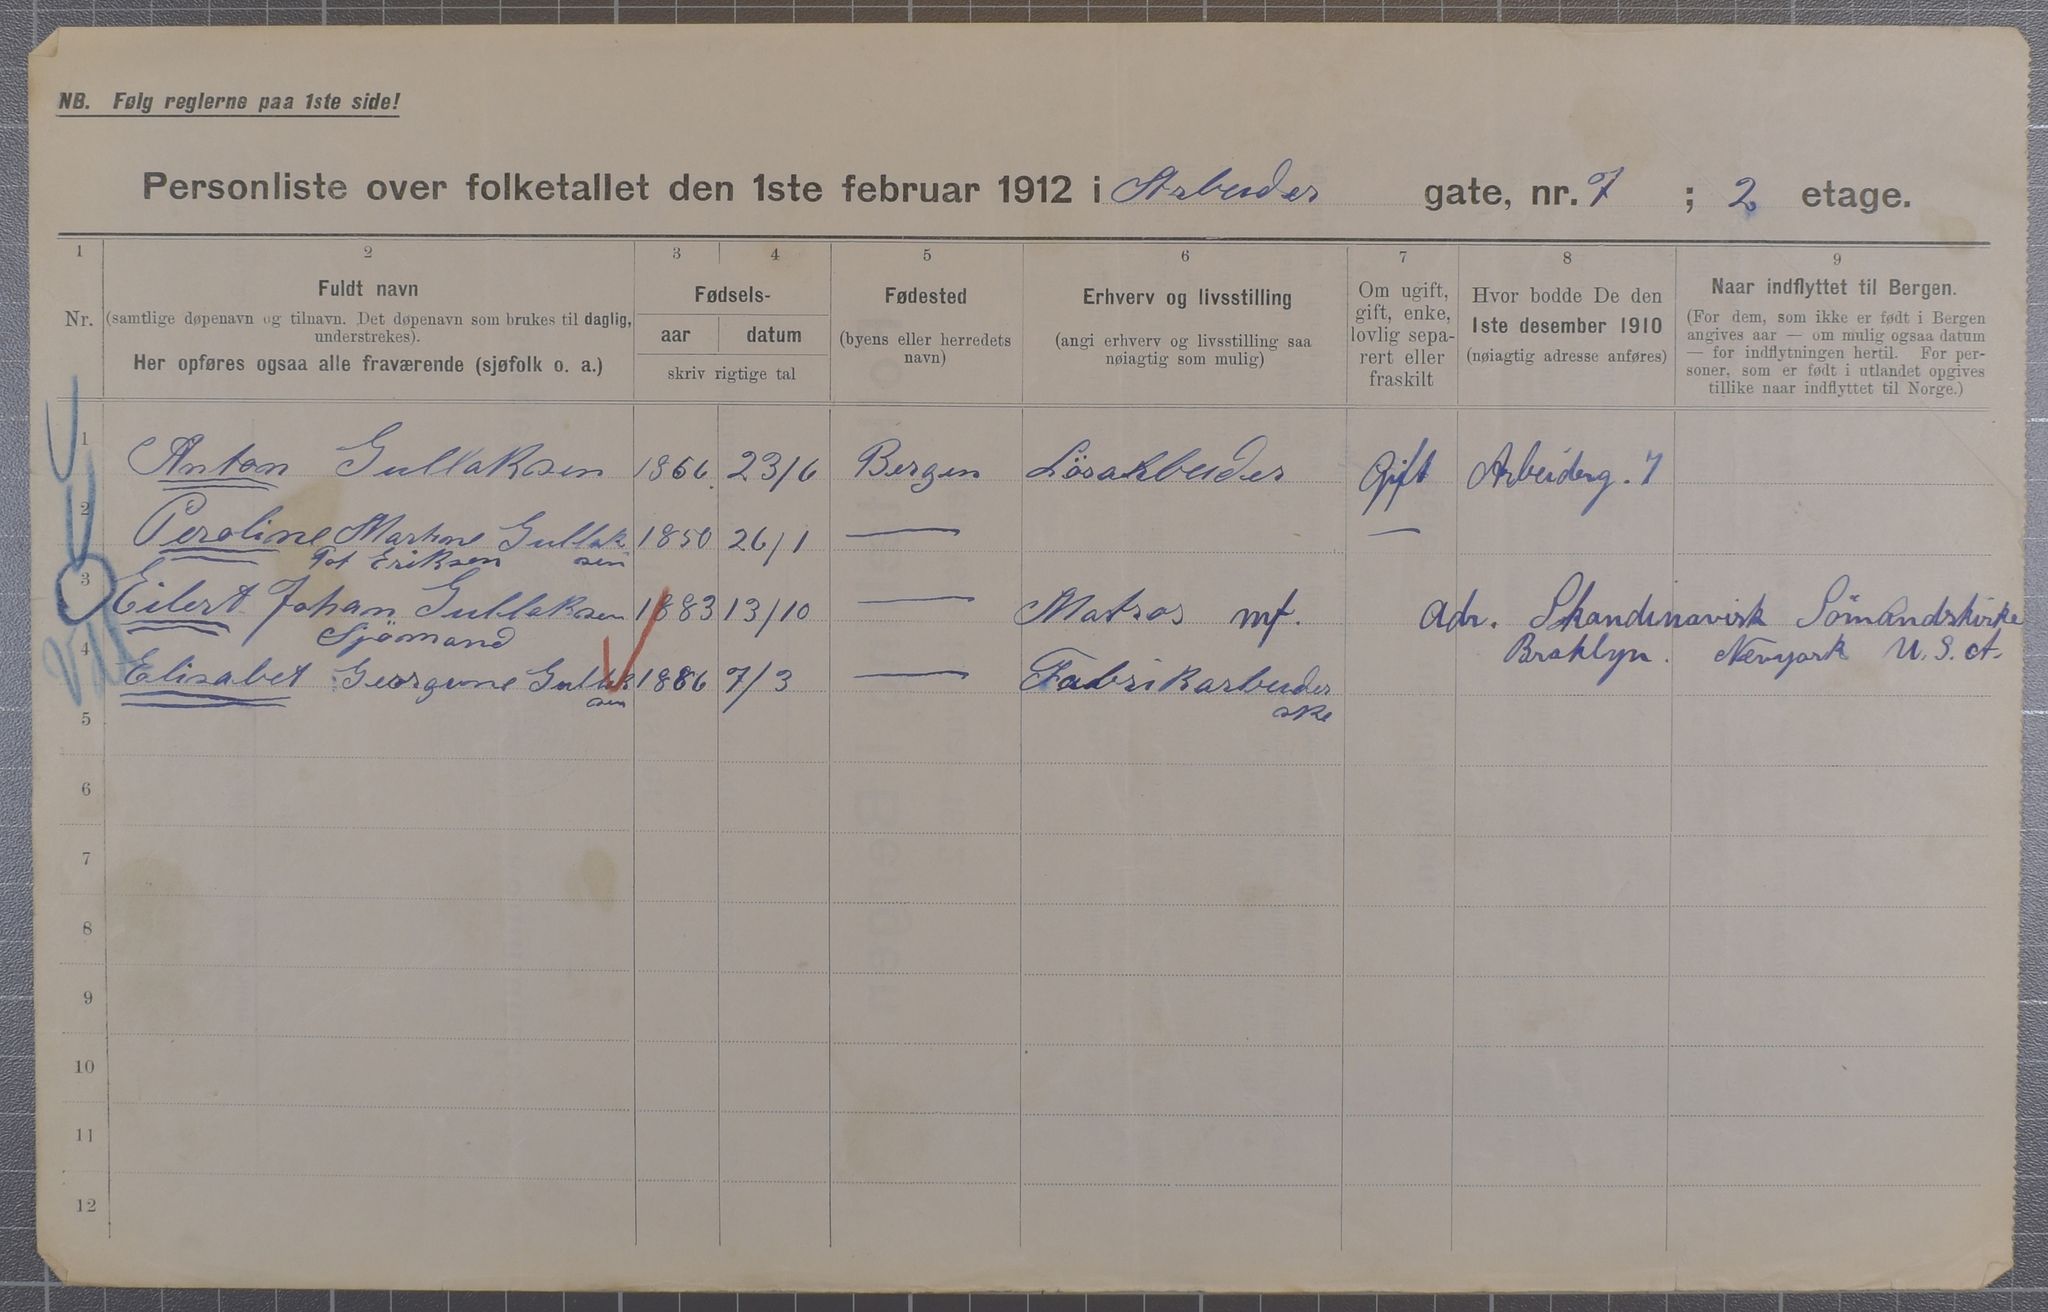 NB. Følg reglerne paa 1ste side!
Personliste over folketallet den 1ste februar 1912 i Arbeider gate, nr. 7 ; 2 etage.
1 2 3 4 5 6 7 8 9
Nr.
Fuldt navn
(samtlige døpenavn og tilnavn. Det døpenavn som brukes til daglig, understrekes).
Her opføres ogsaa alle fraværende (sjøfolk o. a.)
Fødsels-
aar datum
skriv rigtige tal
Fødested
(byens eller herredets
navn)
Erhverv og livsstilling
(angi erhverv og livsstilling saa
nøiagtig som mulig)
Om ugift,
gift, enke,
lovlig sepa-
rert eller
fraskilt
Hvor bodde De den
1ste desember 1910
(nøiagtig adresse anføres)
Naar indflyttet til Bergen.
(For dem, som ikke er født i Bergen
angives aar — om mulig ogsaa datum
— for indflytningen hertil. For per-
soner, som er født i utlandet opgives
tillike naar indflyttet til Norge.)
1 Anton Gullaksen 1856 23/6 Bergen Lösarbeider Gift Arbeiderg. 7
2 Peroline Martine Gullak 1850 26/1 — —
Föt Eriksen sen
3 Eilert Johan Gullaksen 1883 13/10 — Matros mf. adr. Skandinavisk Sömandskirke
Sjömand Broklyn. Newyork U.S.A.
4 Elisabet Georgine Gullak 1886 7/3 — Fabrikarbeider
sen ske
5
6
7
8
9
10
11
12